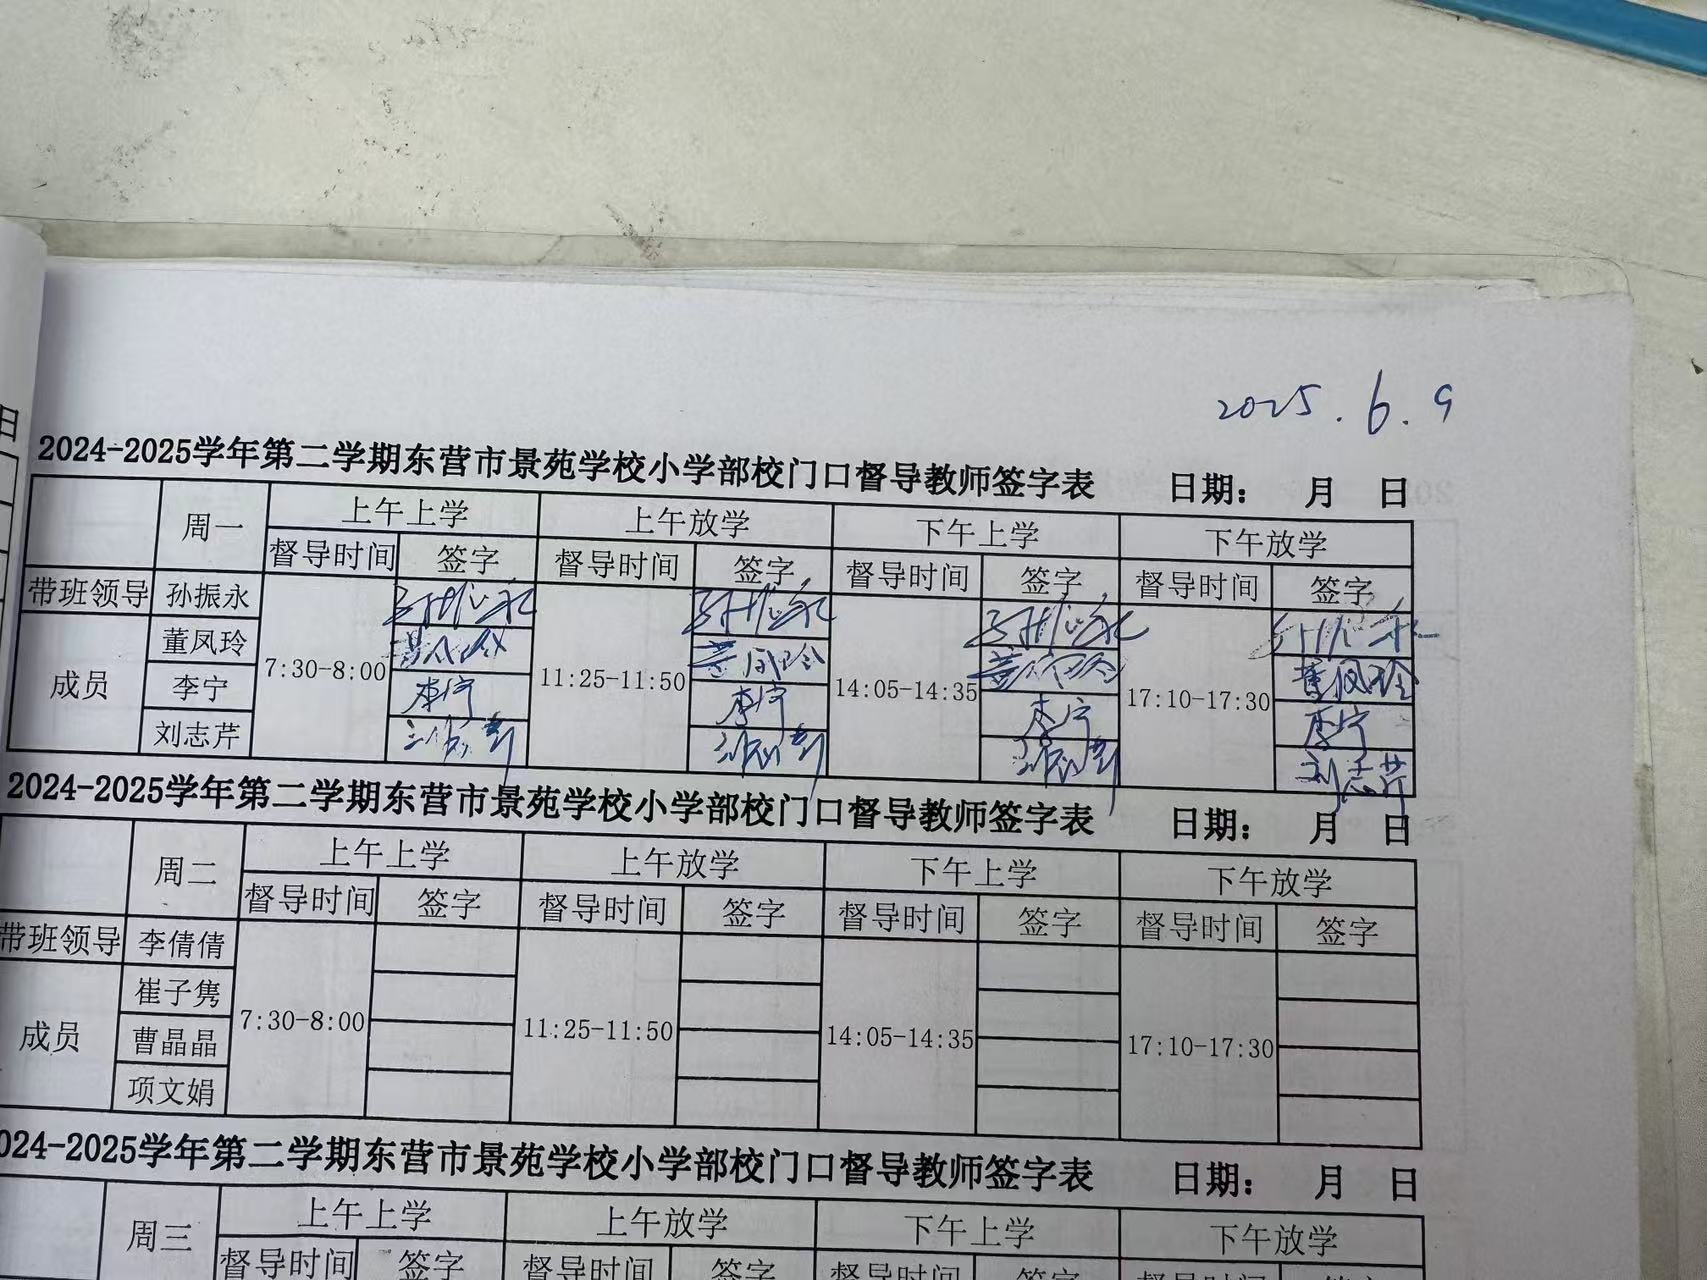 2025.6.9
日
2024-2025学年第二学期东营市景苑学校小学部校门口督导教师签字表 日期： 月 日
周一 上午上学 上午放学 下午上学 下午放学
督导时间 签字 督导时间 签字 督导时间 签字 督导时间 签字
带班领导 孙振永 孙振永 孙振永 孙振永 孙振永
成员 董凤玲 7:30-8:00 董凤玲 11:25-11:50 董凤玲 14:05-14:35 董凤玲 17:10-17:30 董凤玲
李宁 李宁 李宁 李宁 李宁
刘志芹 刘志芹 刘志芹 刘志芹 刘志芹
2024-2025学年第二学期东营市景苑学校小学部校门口督导教师签字表 日期： 月 日
周二 上午上学 上午放学 下午上学 下午放学
督导时间 签字 督导时间 签字 督导时间 签字 督导时间 签字
带班领导 李倩倩
成员 崔子隽 7:30-8:00 11:25-11:50 14:05-14:35 17:10-17:30
曹晶晶
项文娟
024-2025学年第二学期东营市景苑学校小学部校门口督导教师签字表 日期： 月 日
周三 上午上学 上午放学 下午上学 下午放学
督导时间 签字 督导时间 签字 督导时间 签字 督导时间 签字